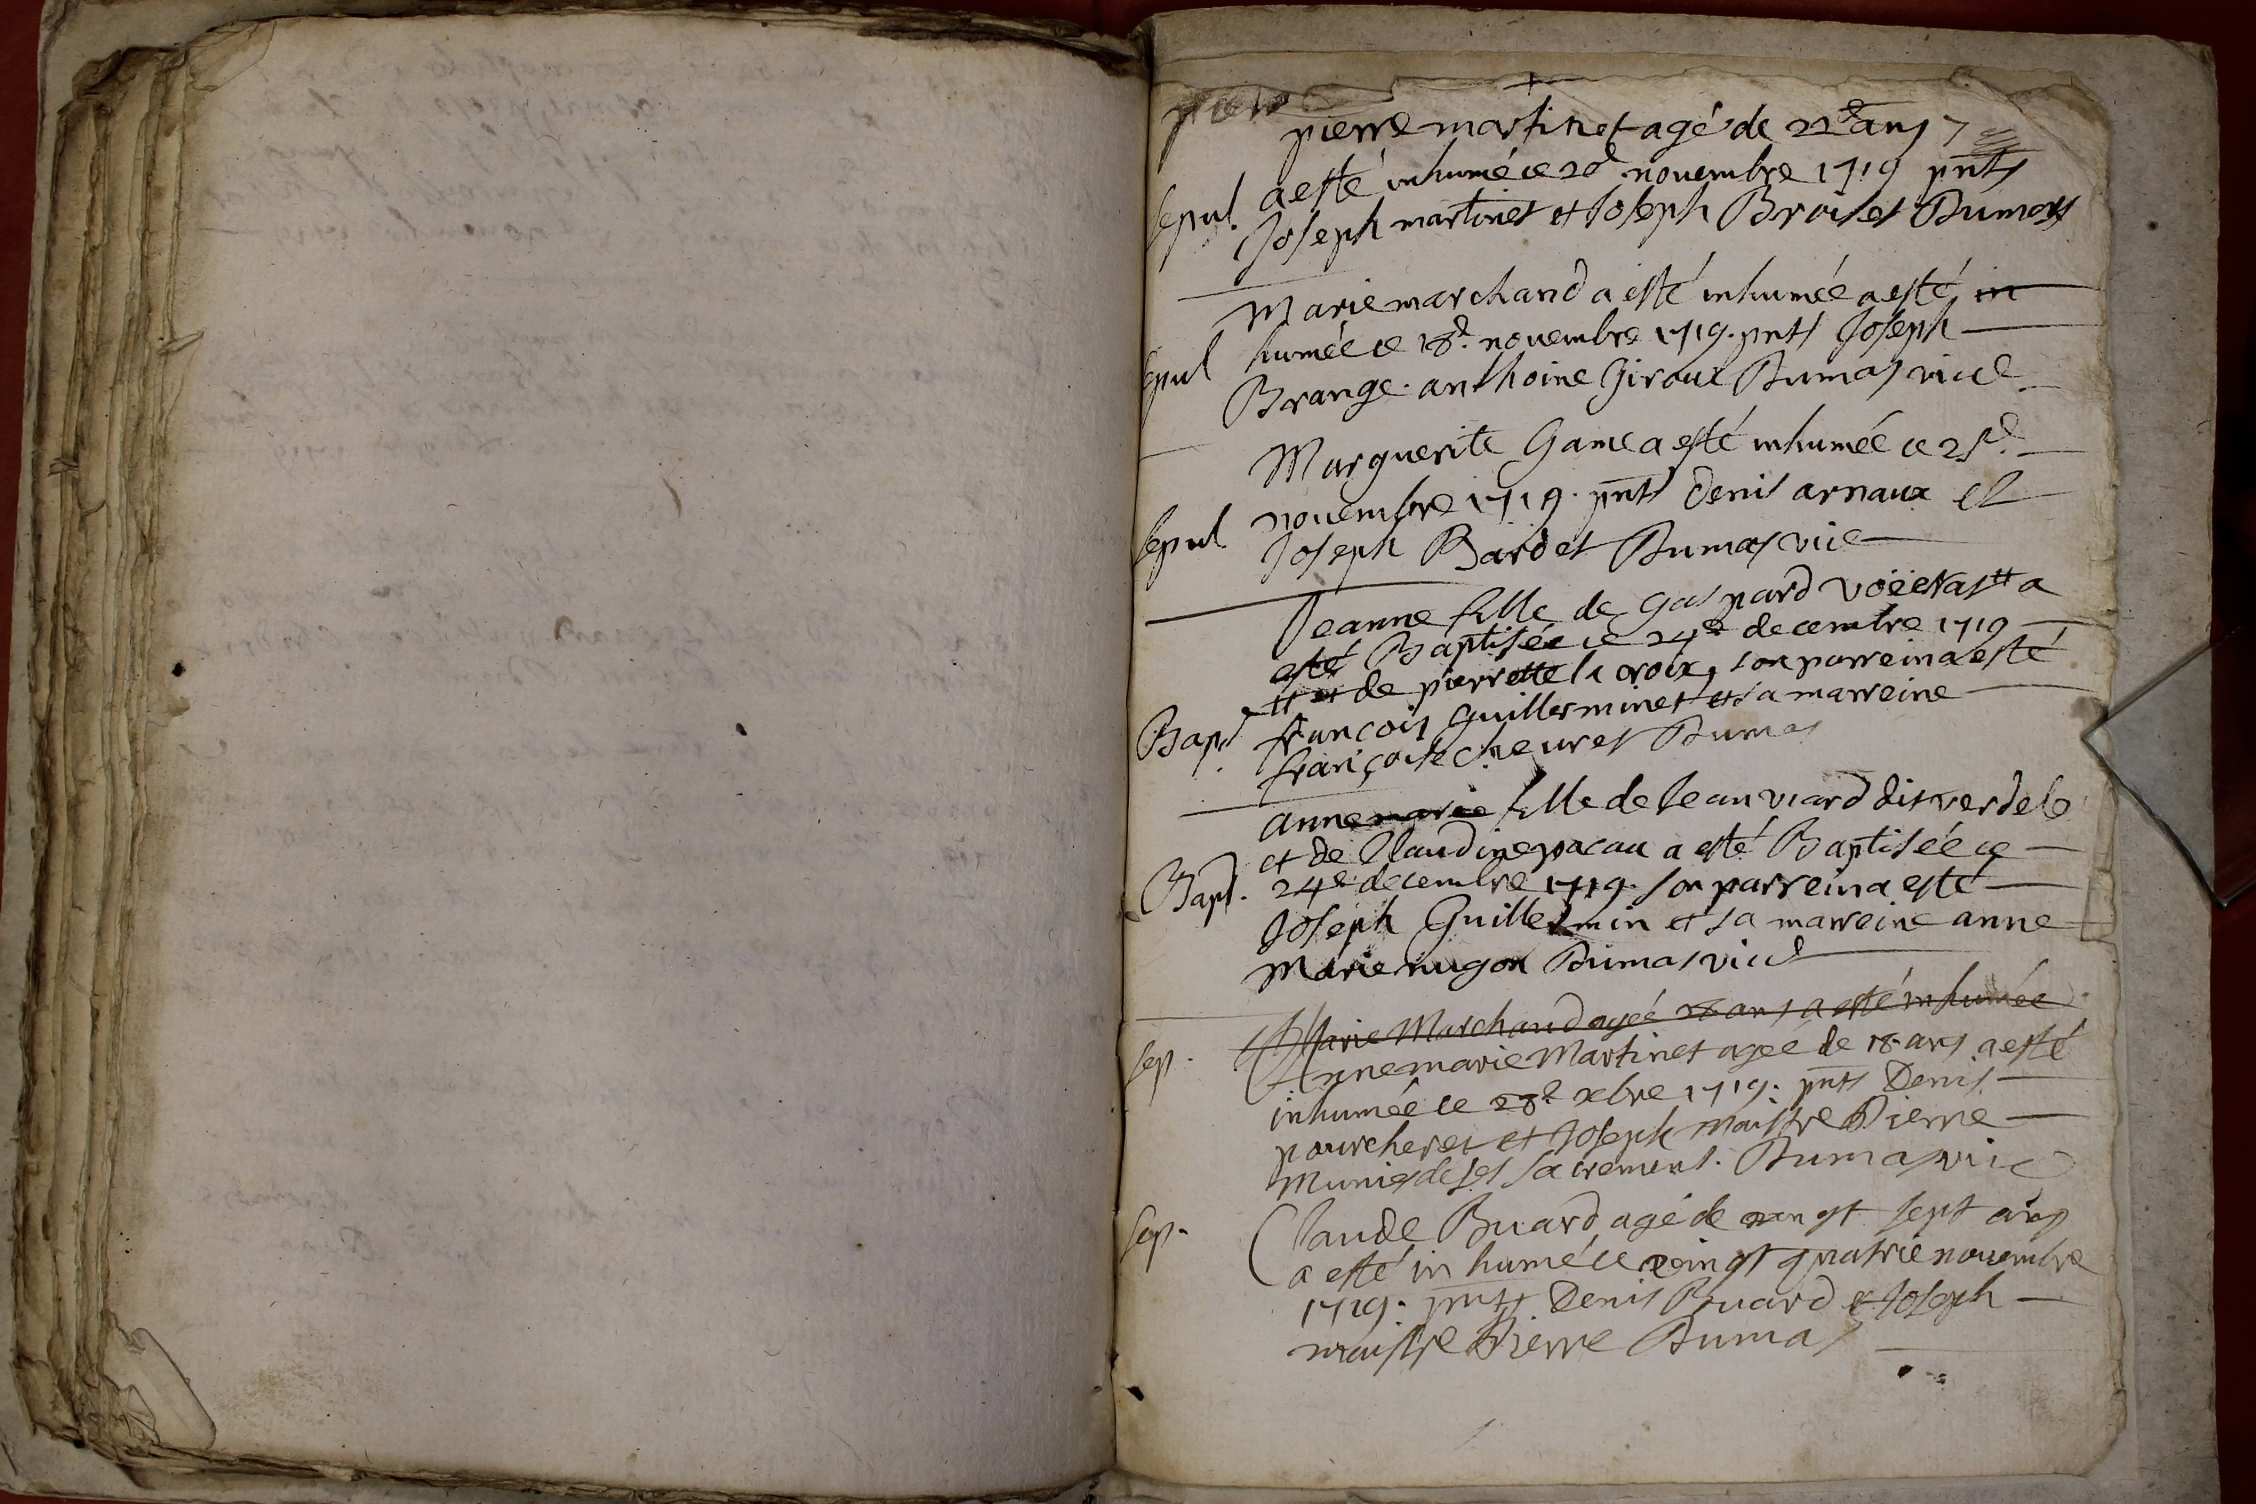 pierre
pierre martinet agé de 22 ans
sepul. a esté inhumé ce 20e novembre 1719 pnts
Joseph martinet et Joseph Broiset Dumas
Marie marchand a esté inhumée a esté in
sepul humée ce 18e. novembre 1719. pnts Joseph
Brange. anthoine Giroux Dumas vice
Marguerite Game a esté inhumée ce 25e.
novembre 1719. pnts Denis arnaux et
sepul Joseph Bardet Dumas vice
Jeanne fille de Gaspard # a
esté Baptisée ce 24e decembre 1719
# et de pierrette la croix, son parrein a esté
Bapt françois Guillerminet et sa marreine
françoise cheuret Dumas
anne marie fille de Jean viard dit verdele
et de Claudine pacau a esté Baptisée ce
Bapt. 24e decembre 1719. son parrein a esté
Joseph Guillermin et sa marreine anne
Marie nugon Dumas vice
Marie Marchand agée 18 ans a esté inhumée
sep. Annemarie Martinet agée de 18 ans a esté
inhumée ce 28e xbre 1719. pnts Denis
pourcheret et Joseph maistre Pierre
Munie de ses sacrements. Dumas vice
sep. Claude Buard agé de vingt sept ans
a esté inhumé ce vingt quatrie novembre
1719. pnts Denis Buard & Joseph
maistre Pierre Dumas